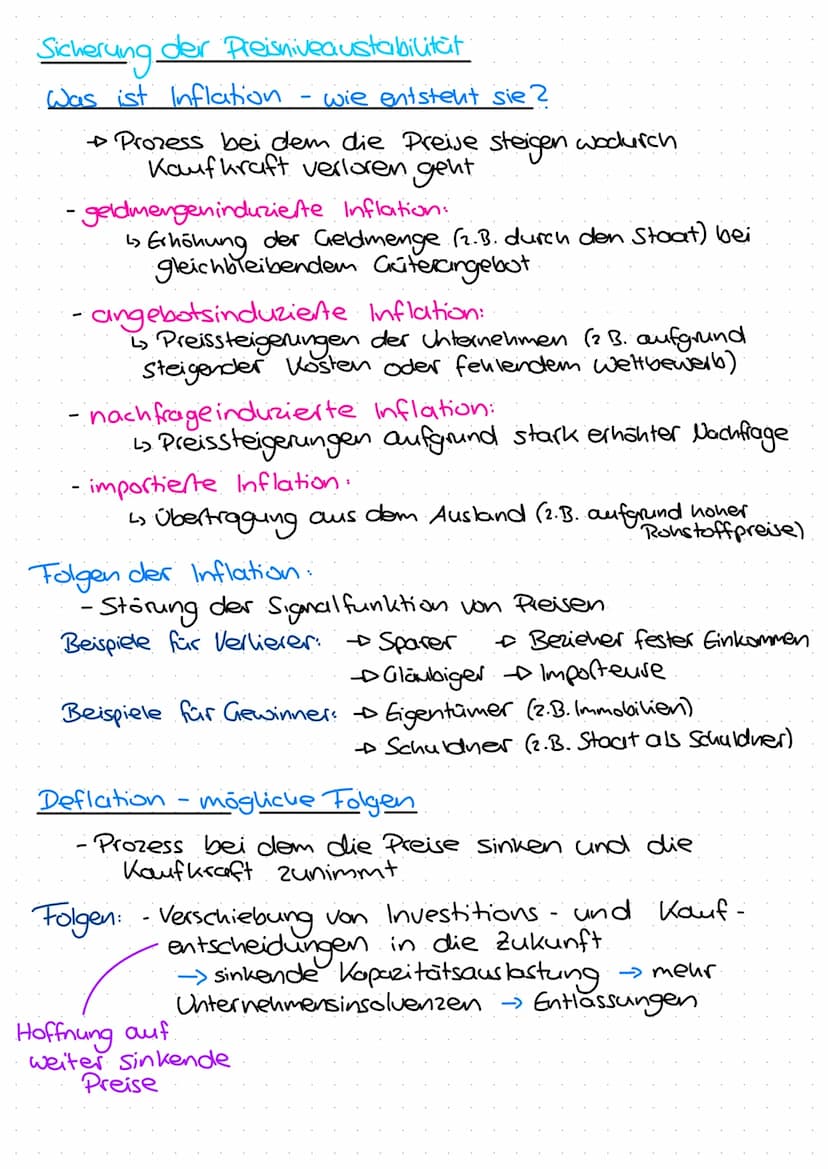 Sicherung der Preisniveaustabilität
Was ist Inflation - wie entsteht sie?
→ Prozess bei dem die Preise steigen wodurch
Kaufkraft verloren geht
- geldmengeninduzierte Inflation:
↳ Erhöhung der Geldmenge (z.B. durch den Staat) bei
gleichbleibendem Güterangebot
- angebotsinduzierte Inflation:
↳ Preissteigerungen der Unternehmen (z B. aufgrund
steigender Kosten oder fehlendem Wettbewerb)
- nachfrageinduzierte Inflation:
↳ Preissteigerungen aufgrund stark erhöhter Nachfrage
- importierte Inflation:
↳ Übertragung aus dem Ausland (z.B. aufgrund hoher
Rohstoffpreise)
Folgen der Inflation:
- Störung der Signalfunktion von Preisen
Beispiele für Verlierer: → Sparer → Bezieher fester Einkommen
→ Gläubiger → Importeure
Beispiele für Gewinner: → Eigentümer (z.B. Immobilien)
→ Schuldner (z.B. Staat als Schuldner)
Deflation - mögliche Folgen
- Prozess bei dem die Preise sinken und die
Kaufkraft zunimmt
Folgen: - Verschiebung von Investitions- und Kauf-
entscheidungen in die Zukunft
→ sinkende Kapazitätsauslastung → mehr
Unternehmensinsolvenzen → Entlassungen
Hoffnung auf
weiter sinkende
Preise